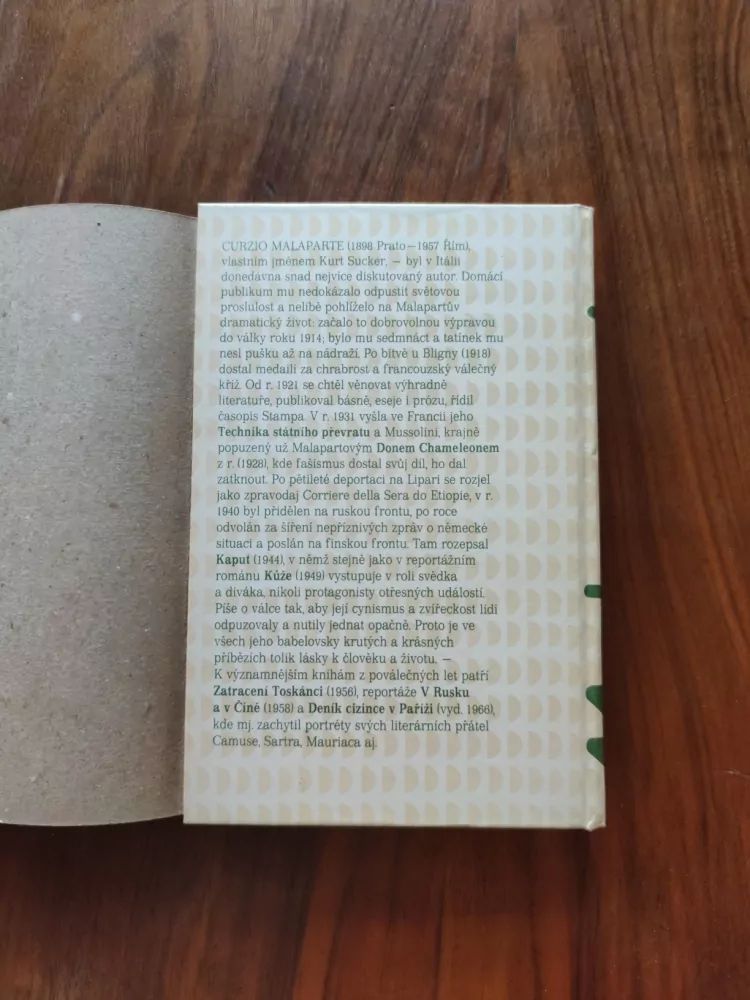 CURZIO MALAPARTE (1898 Prato – 1957 Řím),
vlastním jménem Kurt Sucker, – byl v Itálii
donedávna snad nejvíce diskutovaný autor. Domácí
publikum mu nedokázalo odpustit světovou
proslulost a nelibě pohlíželo na Malapartův
dramatický život: začalo to dobrovolnou výpravou
do války roku 1914; bylo mu sedmnáct a tatínek mu
nesl pušku až na nádraží. Po bitvě u Bligny (1918)
dostal medaili za chrabrost a francouzský válečný
kříž. Od r. 1921 se chtěl věnovat výhradně
literatuře, publikoval básně, eseje i prózu, řídil
časopis Stampa. V r. 1931 vyšla ve Francii jeho
Technika státního převratu a Mussolini, krajně
popuzený už Malapartovým Donem Chameleonem
z r. (1928), kde fašismus dostal svůj díl, ho dal
zatknout. Po pětileté deportaci na Lipari se rozjel
jako zpravodaj Corriere della Sera do Etiopie, v r.
1940 byl přidělen na ruskou frontu, po roce
odvolán za šíření nepříznivých zpráv o německé
situaci a poslán na finskou frontu. Tam rozepsal
Kaput (1944), v němž stejně jako v reportážním
románu Kůže (1949) vystupuje v roli svědka
a diváka, nikoli protagonisty otřesných událostí.
Píše o válce tak, aby její cynismus a zvířeckost lidi
odpuzovaly a nutily jednat opačně. Proto je ve
všech jeho babelovsky krutých a krásných
příbězích tolik lásky k člověku a životu. –
K významnějším knihám z poválečných let patří
Zatracení Toskánci (1956), reportáže V Rusku
a v Číně (1958) a Deník cizince v Paříži (vyd. 1966),
kde mj. zachytil portréty svých literárních přátel
Camuse, Sartra, Mauriaca aj.